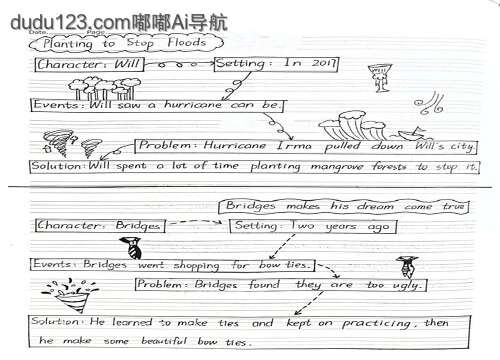 dudu123.com嘟嘟Ai导航
Date Page
Planting to Stop Floods
Character: Will
Setting: In 2017
Will
Events: Will saw a hurricane can be.
Problem: Hurricane Irma pulled down Will's city.
Solution: Will spent a lot of time planting mangrove forests to stop it.
Bridges makes his dream come true
Character: Bridges
Setting: Two years ago
Events: Bridges went shopping for bow ties.
Problem: Bridges found they are too ugly.
Solution: He learned to make ties and kept on practicing, then
he make some beautiful bow ties.